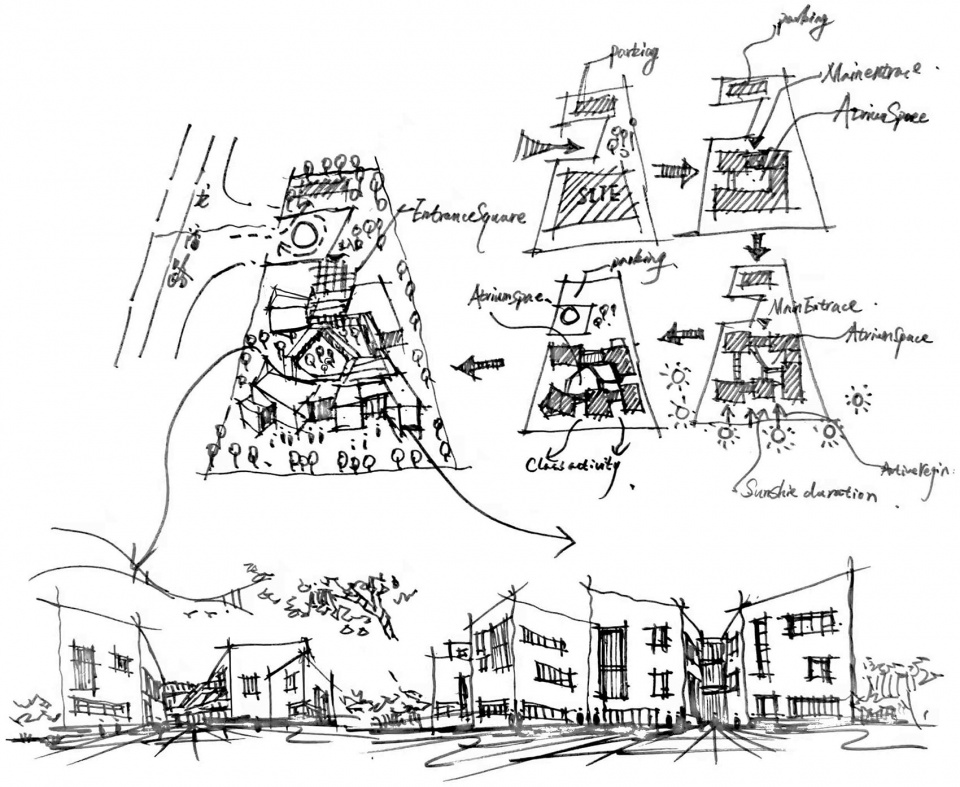 parking
parking
Mainentrace
AtriumSpace
SITE
EntranceSquare
parking
Atriumspace
MainEntrace
AtriumSpace
Classactivity
Sunshie duration